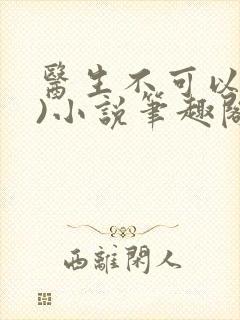 醫生不可以
)小說筆趣閣
西離閑人